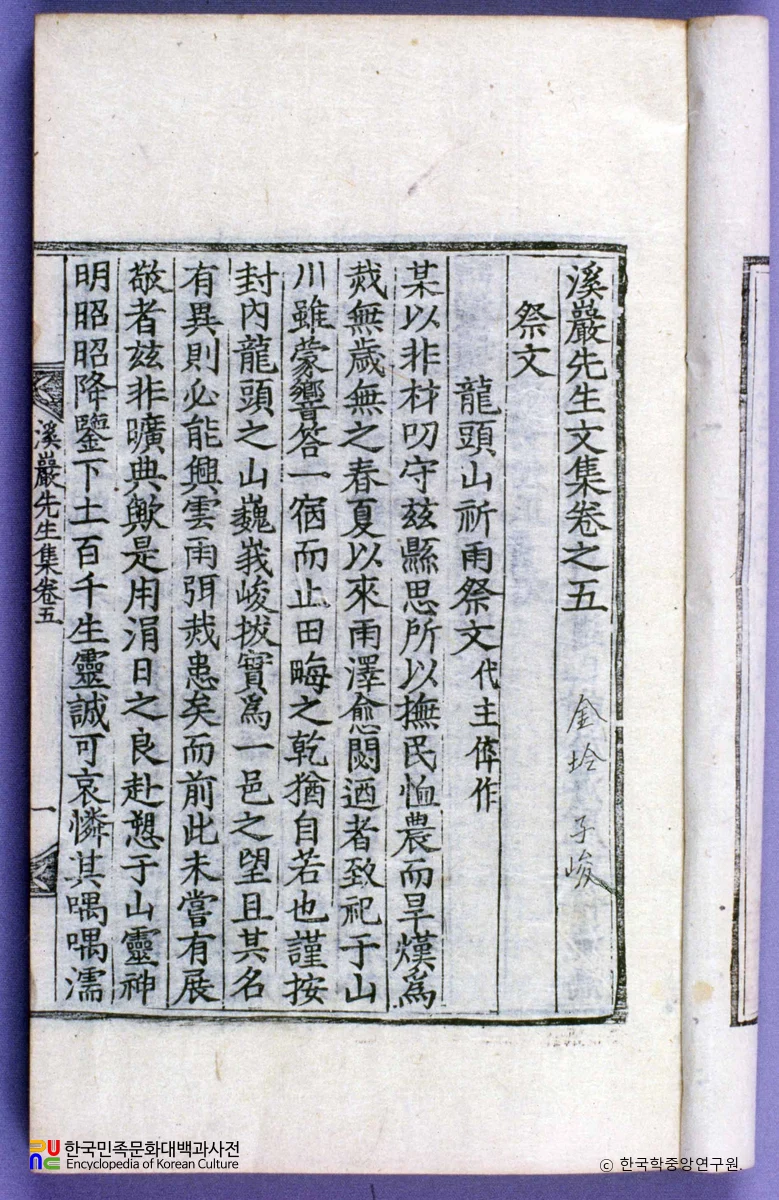 溪巖先生文集卷之五
金坽 子峻
祭文
龍頭山祈雨祭文代主倅作
某以非材叨守玆縣思所以撫民恤農而旱熯爲
烖無歲無之春夏以來雨澤愈閟迺者致祀于山
川雖蒙響答一宿而止田畮之乾猶自若也謹按
封內龍頭之山巍峩峻拔實爲一邑之望且其名
有異則必能興雲雨弭烖患矣而前此未嘗有展
敬者玆非曠典歟是用涓日之良赴愬于山靈神
明昭昭降鑒下土百千生靈誠可哀憐其喁喁濡
溪巖先生集卷五
一
한국민족문화대백과사전
Encyclopedia of Korean Culture
© 한국학중앙연구원